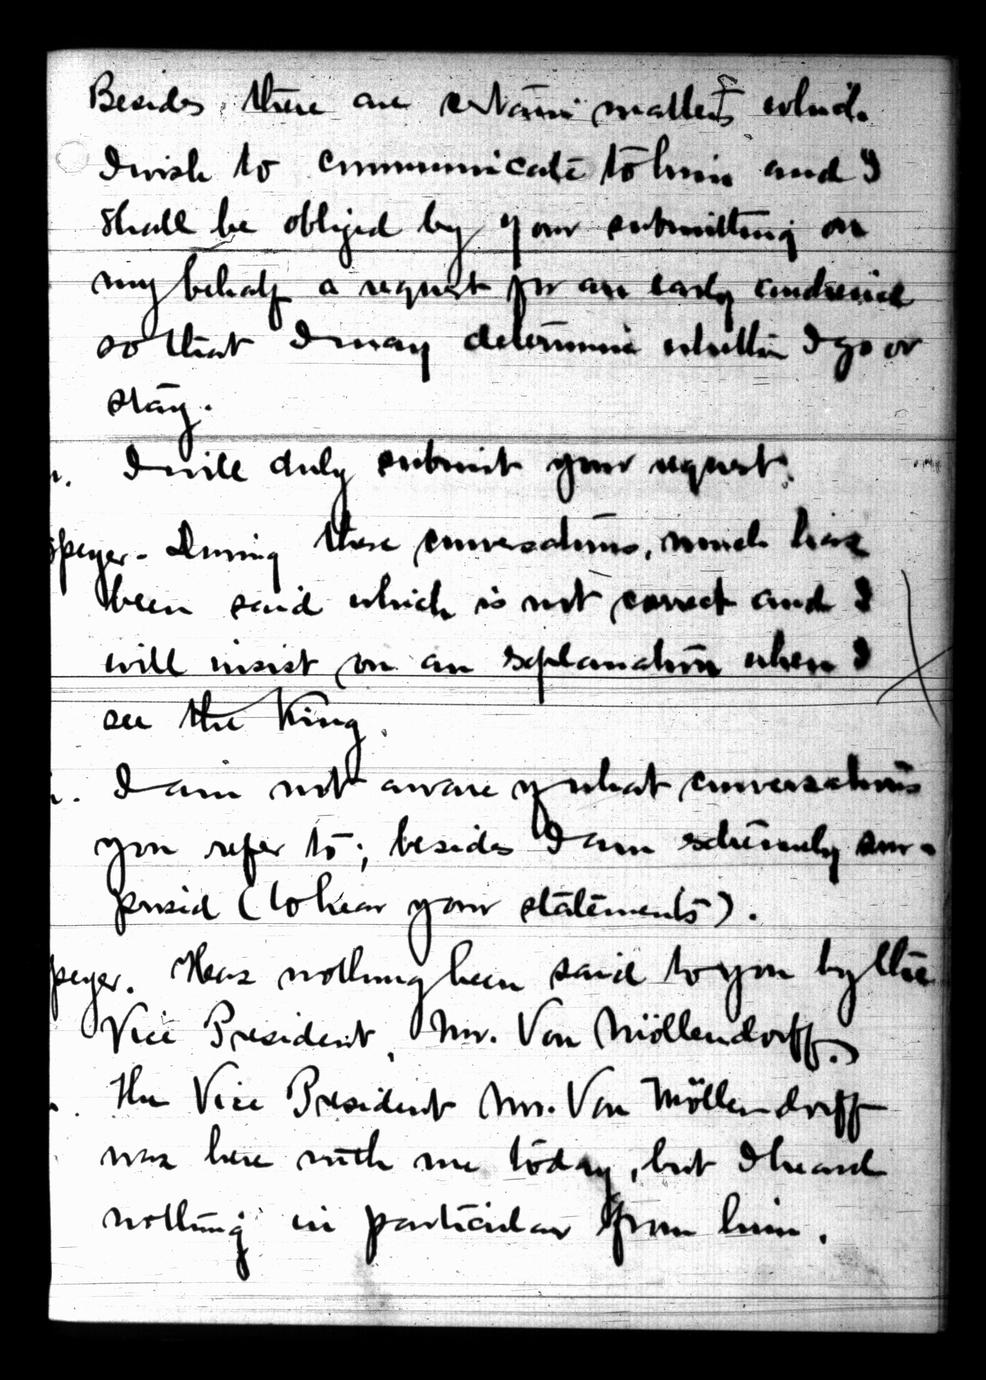 Besides, there are certain matters which
I wish to communicate to him and I
shall be obliged by your submitting on
my behalf a request for an early audience
so that I may determine whether I go or
stay.
I will duly submit your request.
speyer. During these conversations, much has
been said which is not correct and I
will insist on an explanation when I
see the King.
I am not aware of what conversations
you refer to; besides I am extremely sur-
prised (to hear your statements).
peyer. Has nothing been said to you by the
Vice President, Mr. Von Möllendorff.
The Vice President Mr. Von Möllendorff
was here with me today, but I heard
nothing in particular from him.